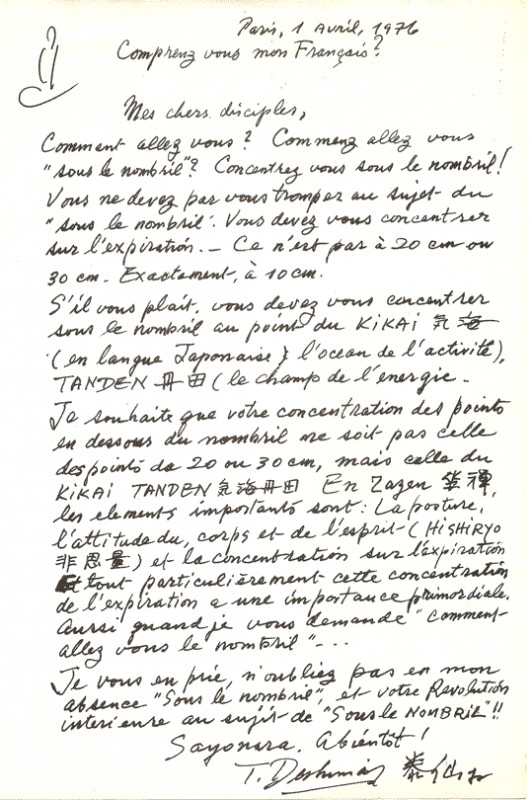 Paris, 1 Avril, 1976
Comprenz vous mon Français?
Mes chers disciples,
Comment allez vous? Commenz allez vous
"sous le nombril"? Concentrez vous sous le nombril!
Vous ne devez par vous tromper au sujet du
"sous le nombril". Vous devez vous concentrer
sur l'expiration. — Ce n'est par à 20 cm ou
30 cm. Exactament, à 10 cm.
S'il vous plait, vous devez vous concentrer
sous le nombril au point du KiKAi 気海
(en langue Japonaise) l'ocean de l'activité),
TANDEN 丹田 (le champ de l'energie.
Je souhaite que votre concentration des points
en dessous du nombril ne soit pas celle
des points de 20 ou 30 cm, mais celle du
KIKAI TANDEN 気海丹田 En Zazen 坐禅,
les elements importants sont: La posture,
l'attitude du, corps et de l'esprit (HiSHiRYO
非思量) et la concentration sur l'expiration
Et tout particulièrement cette concentration
de l'expiration a une importance primordiale.
Aussi quand je vous demande "comment
allez vous le nombril"---
Je vous en prie, n'oubliez pas en mon
absence "Sous le nombril", et votre Revolution
interieure au sujet de "Sous le NOMBRiL"!!
Sayonara. Abientôt!
T. Deshimaru